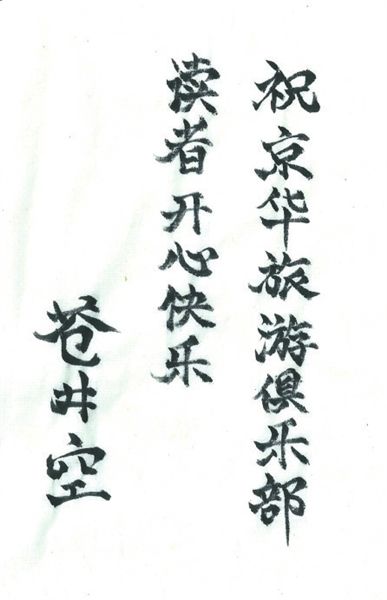 祝京华旅游俱乐部
读者开心快乐
苍井空